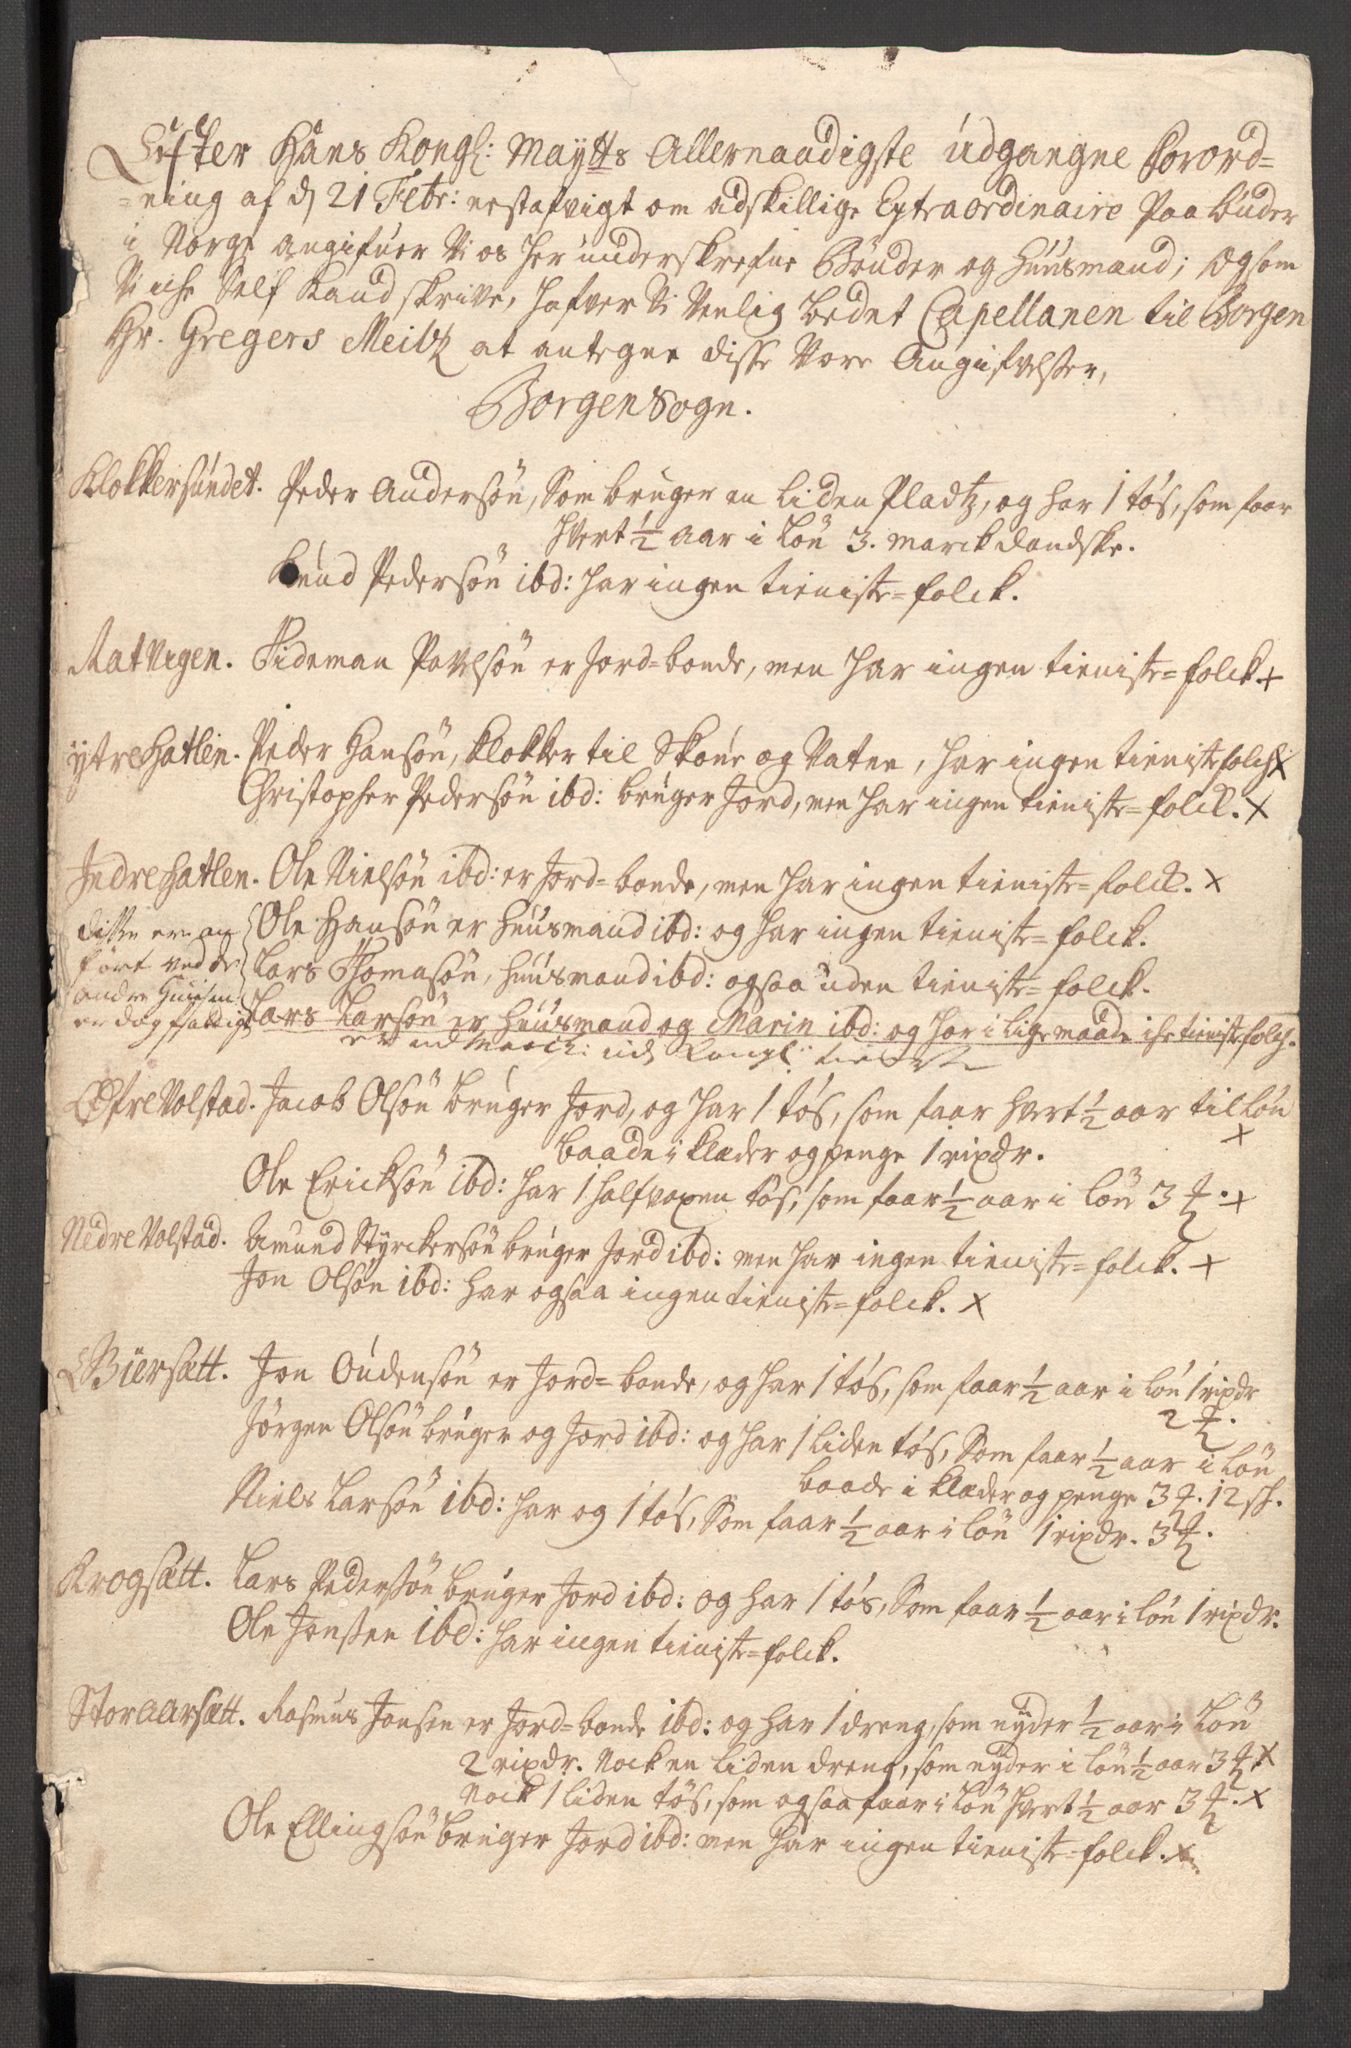 Effter Hans Kongl: Maytts Allernaadigste udgangne Forord=
=ning af d 21 Febr: nestafvigt om adskillige Extraordinaire Paabuder
i Norge angifuer Vi os her underskrefne Bønder og Huusmænd; og som
Vi iche Self Kand skrive, hafver Vi Venlig bedet Capellanen til Borgen
Hr. Gregers Meiltz at antegne disse Vore Angifvelsser,
Borgen Sogn.
Klokkersundet. Peder Andersøn, Som bruger en liden Pladtz, og har 1 tøs, som faar
hvert ½ aar i Løn 3. marck dandske.
Knud Pedersøn ibd: har ingen tieniste=folck.
Matvegen. Tideman Povelsøn er Jord=bonde, men har ingen tieniste=folck. +
Ytre Hatlen. Peder Hansøn, klokker til Skoue og Vatne, har ingen tieniste folch X
Christopher Pedersøn ibd: bruger Jord, men har ingen tieniste=folck. X
Indre Hatlen. Ole Nielsøn ibd: er Jord=bonde, men har ingen tieniste=folck. X
disse ere an Ole Hansøn er huusmand ibd: og har ingen tieniste=folck.
ført ved de Lars Thomasøn, huusmand ibd: ogsaa uden tieniste=folck.
andre Huusm
er dog fattige Lars Larsøn er huusmand og Marin ibd: og har i lige maade iche tieniste folch.
er udi Kongl: tieneste
Øfre Volstad. Jacob Olsøn bruger Jord, og har 1 tøs, som faar hvert ½ aar til Løn
baade i klæder og penge 1 rixdr. +
Ole Ericksøn ibd: har 1 halfvoxen tøs, som faar ½ aar i løn 3 ℳ. +
Nedre Volstad. Amund Styrckersøn bruger Jord ibd: men har ingen tieniste=folck. +
Jon Olsøn ibd: har ogsaa ingen tieniste=folck. X
Biersætt. Jon Oudensøn er Jord=bonde, og har 1 tøs, som faar ½ aar i løn 1 rixdr
2 ℳ.
Jørgen Olsøn bruger og Jord ibd: og har 1 liden tøs, Som faar ½ aar i løn
baade i klæder og penge 3 ℳ. 12 sh.
Niels Larsøn ibd: har og 1 tøs, Som faar ½ aar i løn 1 rixdr. 3 ℳ.
Krogsætt. Lars Pederssøn bruger Jord ibd: og har 1 tøs, Som faar ½ aar i løn 1 rixdr.
Ole Jonssen ibd: har ingen tieniste=folck.
Stor Aarsætt. Rasmus Jonsen er Jord=bonde ibd: og har 1 dreng, som nyder ½ aar i Løn
2 rixdr. Nock en liden dreng, som nyder i løn ½ aar 3 ℳ X
Nock 1 liden tøs, som ogsaa faar i Løn hvert ½ aar 3 ℳ. X
Ole Ellingsøn bruger Jord ibd: men har ingen tieniste=folck. X